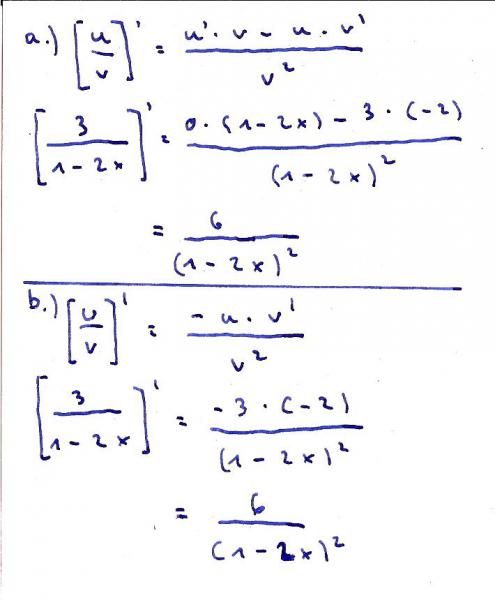 a.) [u/v]' = (u' · v - u · v') / v²
[3/(1-2x)]' = (0 · (1-2x) - 3 · (-2)) / (1-2x)²
= 6/(1-2x)²
b.) [u/v]' = (-u · v') / v²
[3/(1-2x)]' = (-3 · (-2)) / (1-2x)²
= 6/(1-2x)²